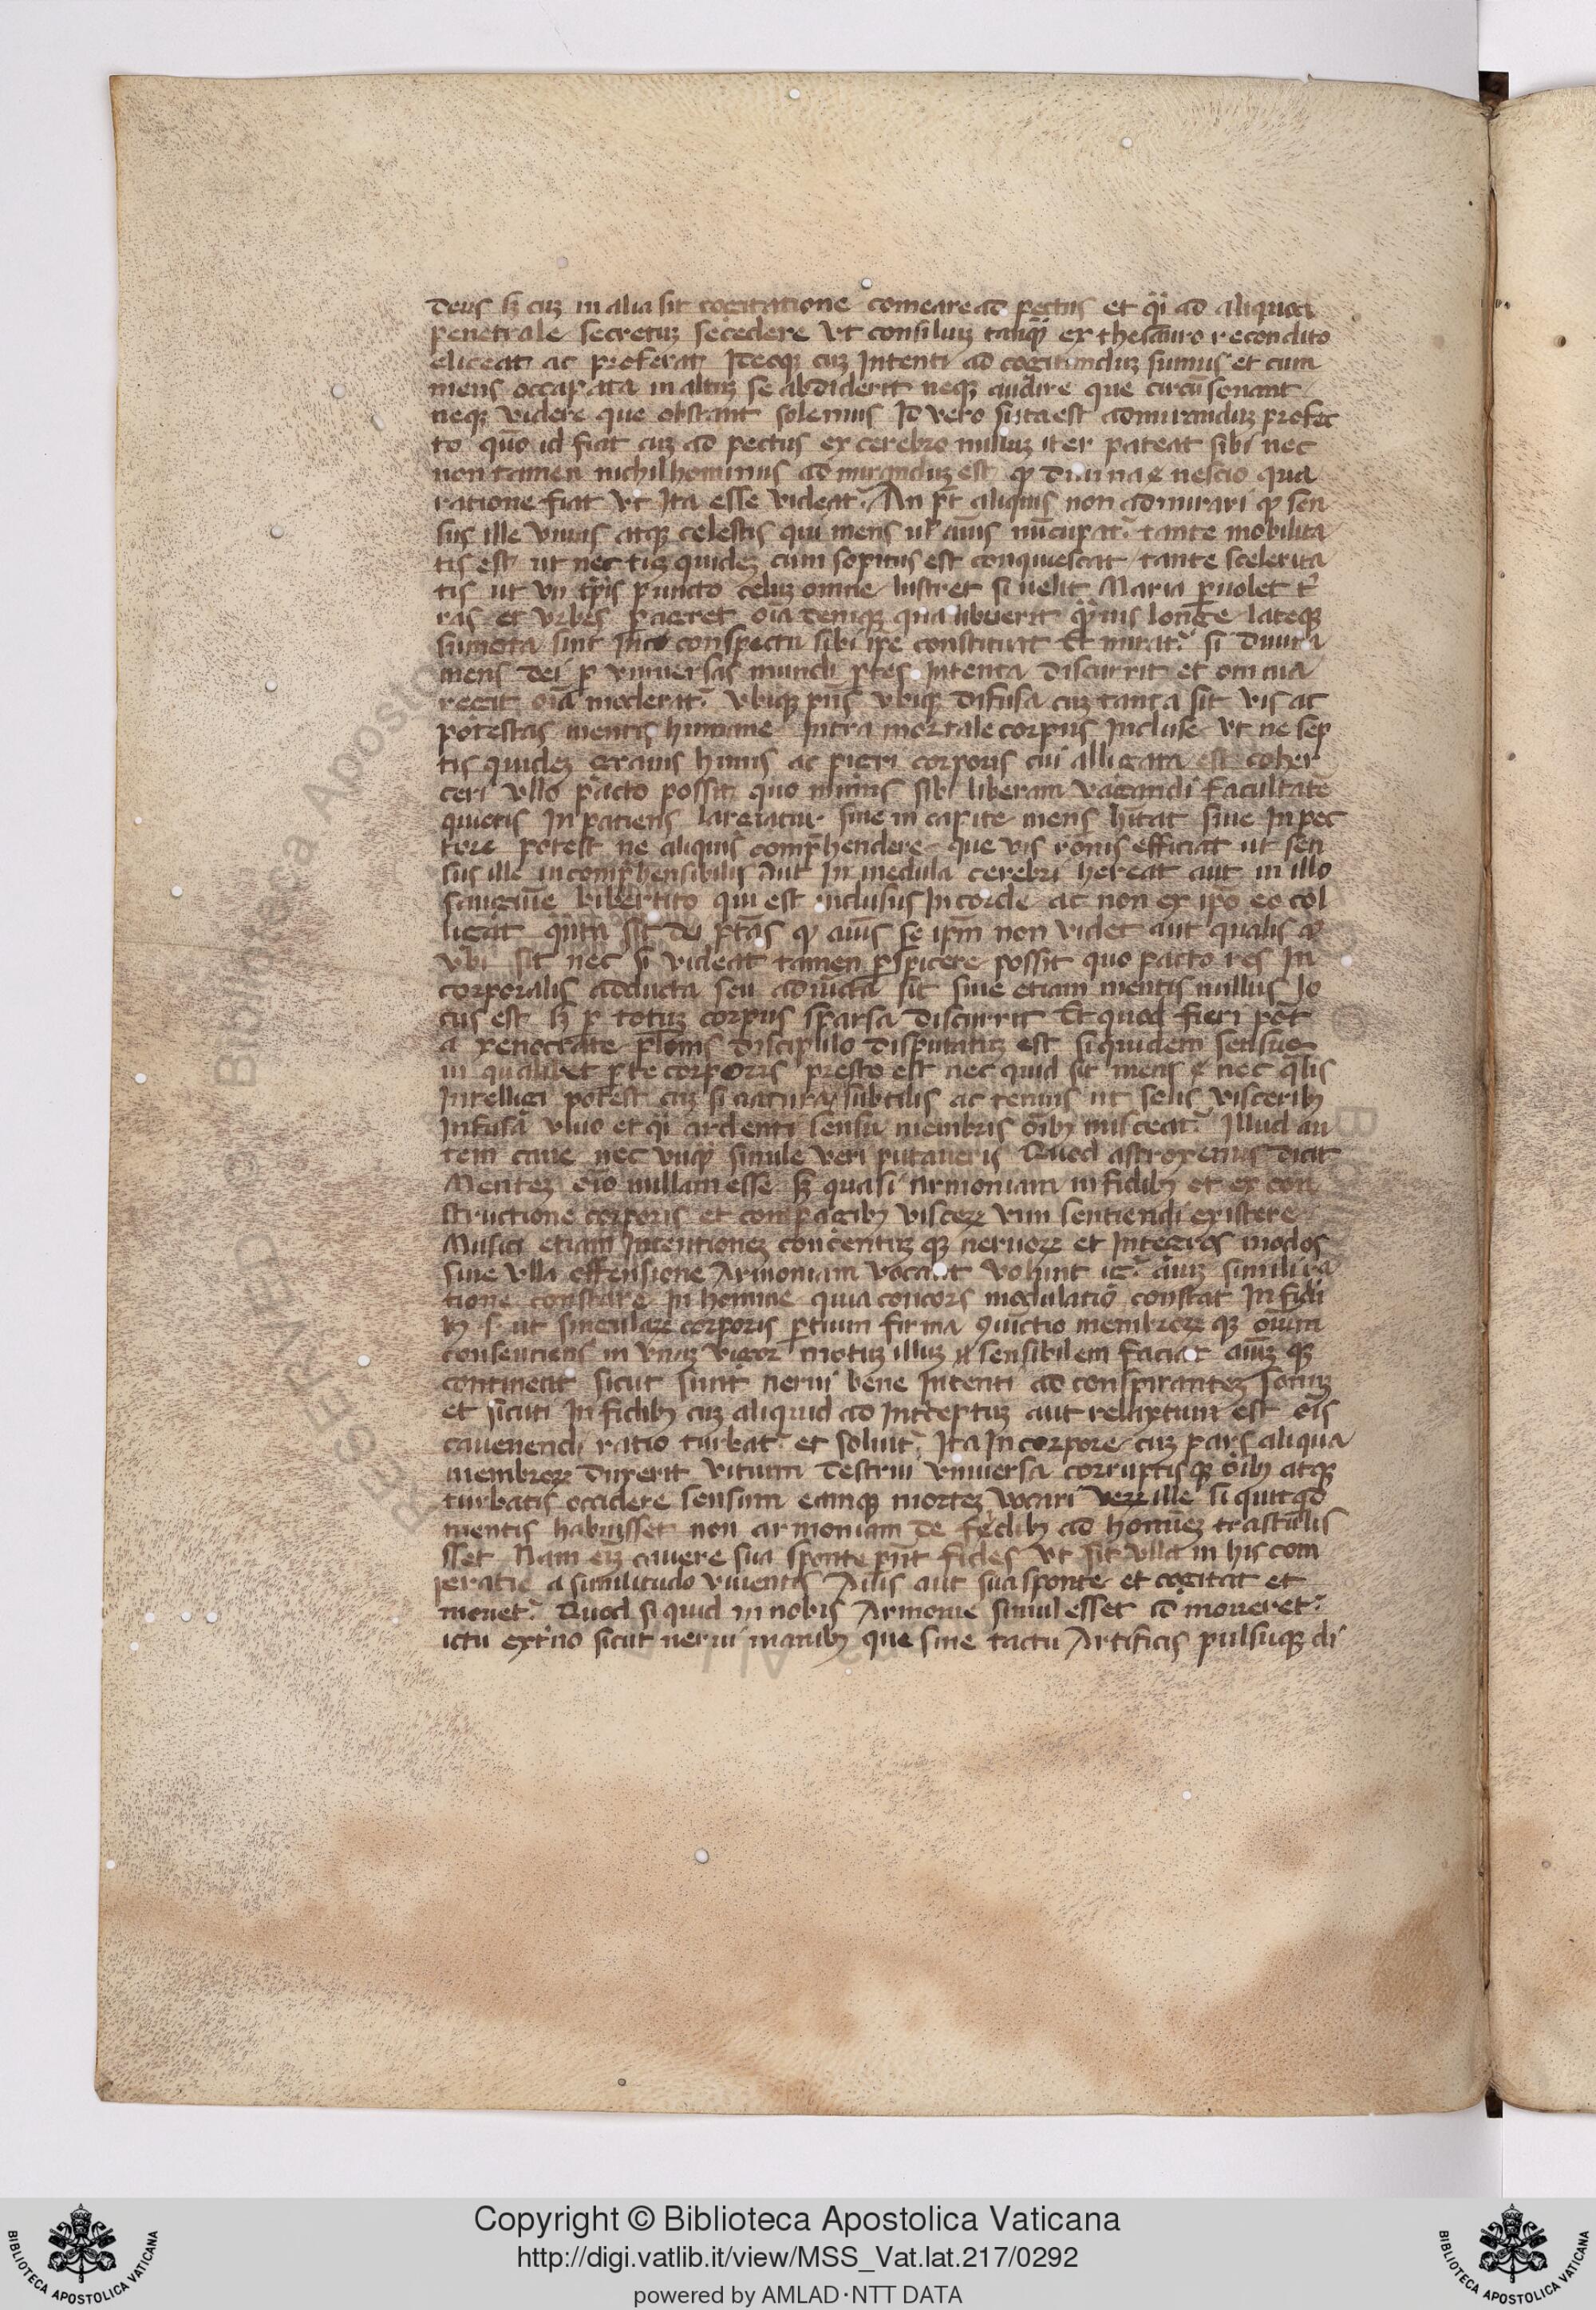 deus sꝫ cuꝫ in alia sit cogitatione comeare ad pectus et qͣi ad aliquod
penetrale secretuꝫ secedere Vt consiluiꝫ tanqͣ ex thesauro recondito
eliceat ac proferat Ideoqꝫ cuꝫ Intenti ad cogitanduꝫ sumus et cum
mens occapata in altuꝫ se abdiderit neqꝫ audire que circū sonant
neqꝫ videre que obstant solemus Id vero si ita est admiranduꝫ profec
to quō id fiat cuꝫ ad pectus ex cerebro nulluꝫ iter pateat sibi nec
non tamen nichilhominus admiranduꝫ est qꝫ diuinae nescio qua
ratione fiat vt Ita esse videatᷣ An pt̄ aliquis non admirari qꝫ sen
sus ille viuus atqꝫ celestis qui mens ul̓ aīus nūcupatᷣ tante mobilita
tis est ut nec tūꝫ quideꝫ cum sopitus est conquiescat tante scelerita
tis ut vn tp̄is puncto celuꝫ omne lustret si uelit Maria puolet t̓
ras et vrbes pagret oīa deniqꝫ qua libuerit qͣuis longe lateqꝫ
sumota sint In conspectu sibi ip̄e constituat Et miratᷣ si diuina
mens dei p vniuersas mundi ptes Intenta discurrit et omnia
regit oīa moderatᷣ vbiqꝫ pn̄s vbiqꝫ difusa cuꝫ tanta sit vis ac
potestas mentis humane Intra mortale corpus Incluse vt ne sep
tis quideꝫ grauis huius ac pigri corporis cui alligata est coher
ceri vllo pacto possit quo minus sibi liberam vagandi facultatē
quietis In patiens largiatur siue in capite mens hītat siue In pec
tore potest ne aliquis comp̄hendere que vis rōnis efficiat ut sen
sus ille incomp̄hensibilis Aut In medula cerebri hereat aut in illo
sanguīe bibertito qui est Inclusus In corde ac non ex ip̄o eo col
ligat qn̄ta sit dei ptās qꝫ aīus se ip̄m non videt aut qualis a
vbi sit nec si videat tamen pspicere possit quo pacto res In
corporalis adducta seu adiūcta sit siue etiam mentis nullus lo
cus est sꝫ p totuꝫ corpus sparsa discurrit Et quod fieri pōt
a xenocrate pl̄onis discipulo disputatuꝫ est siquidem sensus
in qualibet pte corporis presto est nec quid sit mens nec qͣlis
Intelligi potest cuꝫ si natura subtilis ac tenuis ut solis visceribꝫ
Infusa viuo et qͣi ardenti sensu membris oībꝫ misceatᷣ Illud au
tem caue nec vnqͣ simile veri putaueris Quod astroxenus dicit
Menteꝫ oīo nullam esse sꝫ quasi Armoniam in fidibꝫ et ex con
structione corporis et compagibꝫ visceꝝ vim sentiendi existere
Musici etiam Intentioneꝫ concentuꝫ qꝫ neruoꝝ et Integros modos
sine vlla offensione Armoniam vocant Volunt igᷣ aīuꝫ simili ra
tione constare In homine quia concors modulatio constat In fidi
bꝫ s. ut singulaꝝ corporis ptium firma ꝯuictio membroꝝ qꝫ oīum
consenciens in vnuꝫ vigor motuꝫ illuꝫ sensibilem faciat aīuꝫ qꝫ
contineat sicut sunt nerui bene Intenti ad conspiranteꝫ sonuꝫ
et sicuti In fidibꝫ cuꝫ aliquid ad Interptuꝫ aut relaxtum est oīs
cauenendi ratio turbatᷣ et soluitᷣ Ita In corpore cuꝫ pars aliqua
membroꝝ duxerit vitium destrui vniuersa corruptisqꝫ oībꝫ atqꝫ
turbatis occidere sensum eamqꝫ morteꝫ vocari veꝝ ille si quicqd
mentis habuisset non armoniam de fedibꝫ ad homīeꝫ trastulis
sset Nam eīꝫ cauere sua sponte pn̄t fides vt sit vlla in his com
peratie a similitudo viuentis Aīus aut sua sponte et cogitat et
mouetᷣ Quod si quid in nobis Armonie simul esset ad moueretᷣ
ictu exīno sicut nerui manibꝫ que sine tactu Artificis pulsuqꝫ di
Copyright © Biblioteca Apostolica Vaticana
http://digi.vatlib.it/view/MSS_Vat.lat.217/0292
powered by AMLAD·NTT DATA